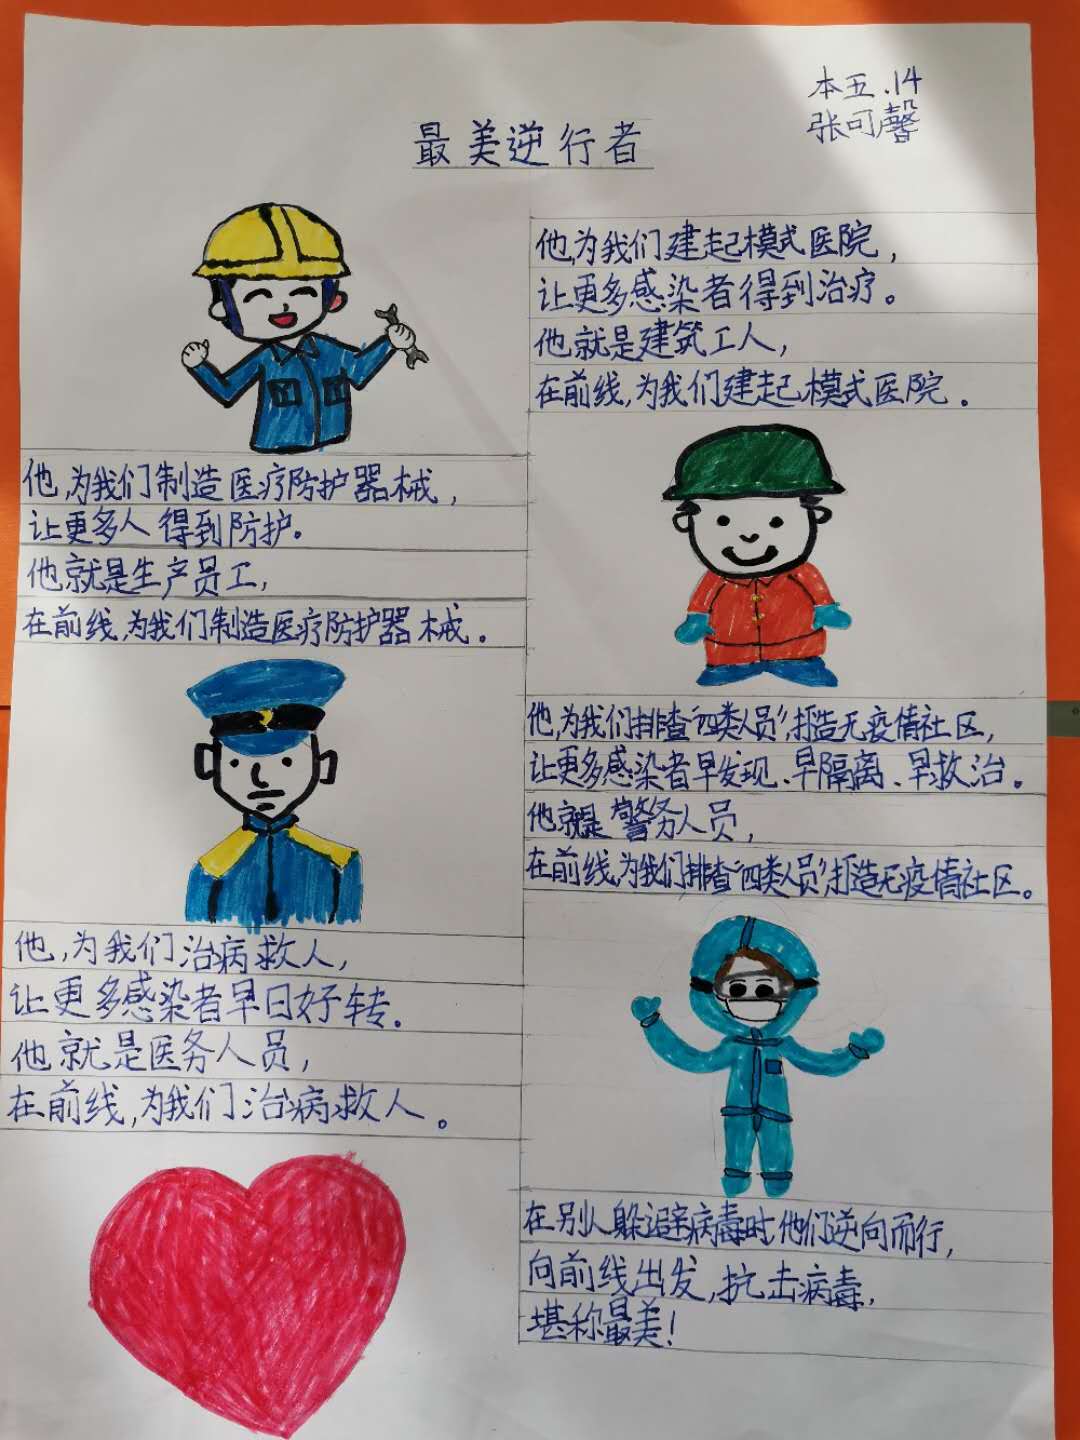 本五.14
张可馨
最美逆行者
他,为我们建起模式医院,
让更多感染者得到治疗。
他就是建筑工人,
在前线,为我们建起模式医院。
他,为我们制造医疗防护器械,
让更多人得到防护。
他就是生产员工,
在前线,为我们制造医疗防护器械。
他,为我们排查“四类人员”,打造无疫情社区,
让更多感染者早发现、早隔离、早救治。
他就是警务人员,
在前线,为我们排查“四类人员”,打造无疫情社区。
他,为我们治病救人,
让更多感染者早日好转.
他就是医务人员,
在前线,为我们治病救人。
在别人躲避病毒时,他们逆向而行,
向前线出发,抗击病毒,
堪称最美!